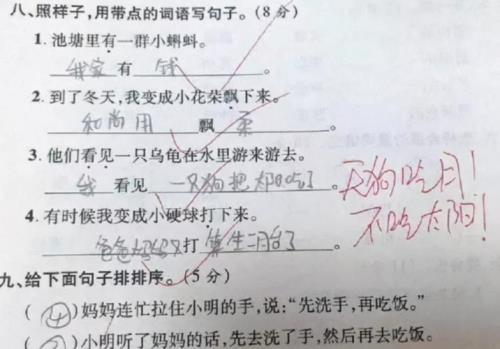 八、照样子,用带点的词语写句子。(8分)
1. 池塘里有一群小蝌蚪。
我家 有 钱 。
2. 到了冬天,我变成小花朵飘下来。
和尚用 飘柔 。
3. 他们看见一只乌龟在水里游来游去。
我 看见 一只狗把 吃了 。
天狗吃月!
不吃太阳!
4. 有时候我变成小硬球打下来。
爸爸 打 。
九、给下面句子排排序。(5分)
(4)妈妈连忙拉住小明的手,说:“先洗手,再吃饭。”
( )小明听了妈妈的话,先去洗了手,然后再去吃饭。